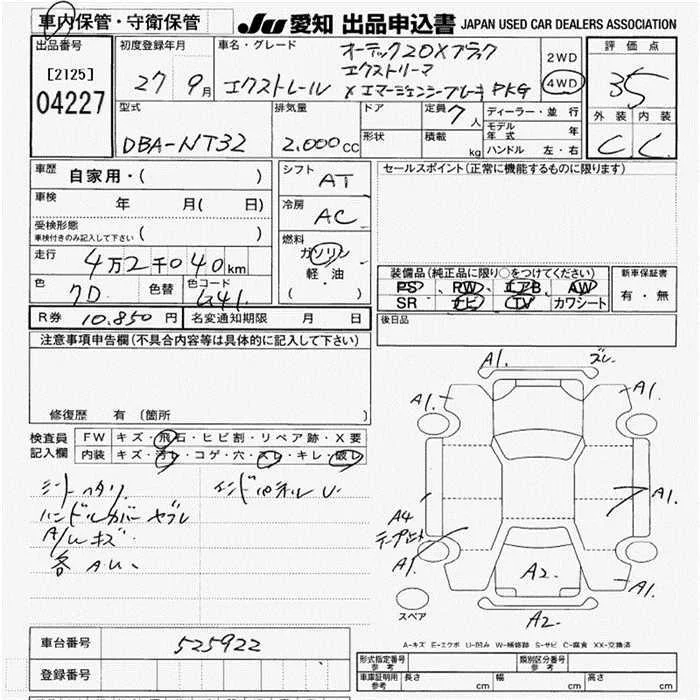 車内保管・守衛保管 JU 愛知 出品申込書 JAPAN USED CAR DEALERS ASSOCIATION
出品番号 初度登録年月 車名・グレード 評価点
[2125] 27 9月 エクストレール オーテック20Xブラック 2WD 35
04227 エクストリーマ 4WD
X エマージェンシーブレーキPKG
型式 排気量 ドア 定員 7人 ディーラー・並行 外装 内装
DBA-NT32 2.000cc 形状 積載 kg モデル年式 年 C C
ハンドル 左・右
車歴 自家用・( ) シフト AT セールスポイント(正常に機能するものに限ります)
車検 年 月( 日) 冷房 AC
受検形態
車検付きのみ記入して下さい ( )
燃料 ガソリン
走行 4万2千040km 軽・油
( ・ )
装備品(純正品に限り○をつけてください) 新車保証書
色 色替 色コード G41 PS、PW、エアB AW 有・無
SR ナビ TV カワシート
R券 10.850円 名変通知期限 月 日 後日品
注意事項申告欄(不具合内容等は具体的に記入して下さい)
A1. ズレ
A1. A1.
修復歴 有 (箇所
検査員 FW キズ・飛石・ヒビ割・リペア跡・X要
記入欄 内装 キズ・汚レ・コゲ・穴・スレ・キレ・破レ
シートヘタリ インドパネルU.
ハンドルカバーヤブレ
A/Uキズ
各A.U.
A1.
A4
A1.
A2. A1.
スペア
A2.
A-キズ E-エクボ U-凹み W-補修跡 S-サビ C-腐食 XX-交換済
車台番号 525922
登録番号
形式指定番号 参考 類別区分番号 参考
車庫証明用 参考 長さ cm 幅 cm 高さ cm